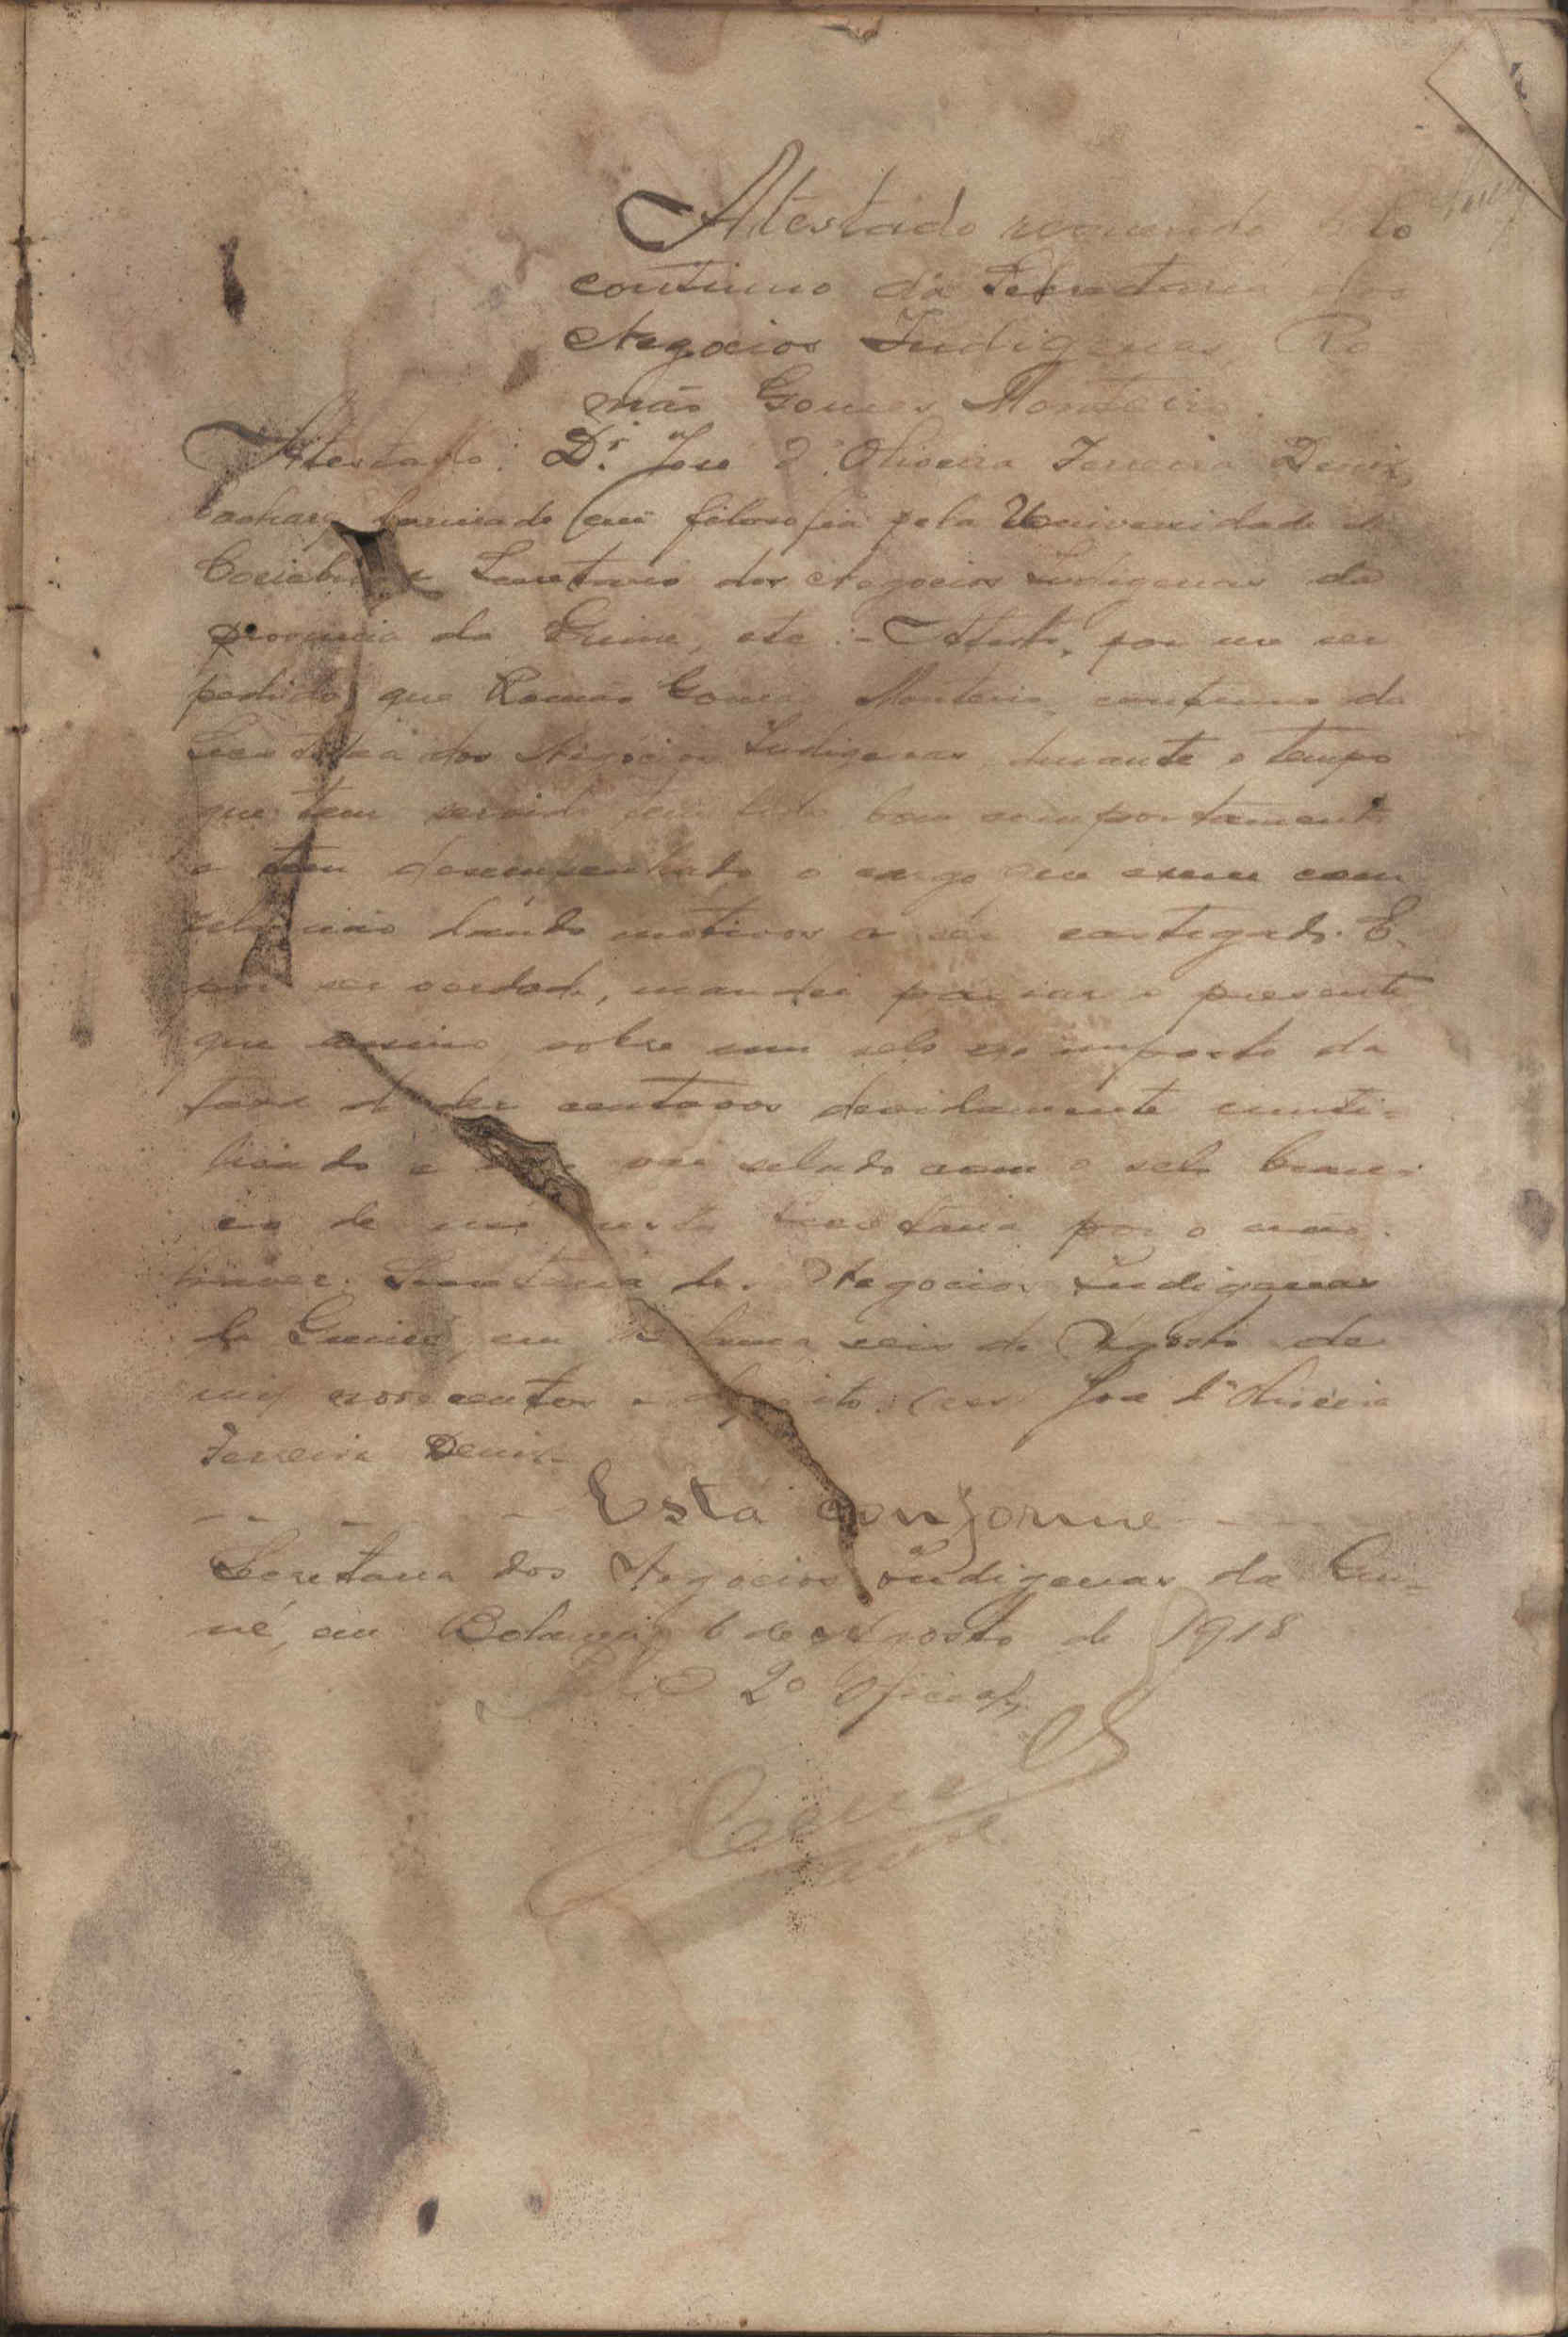 Atestado requerido pelo
continuo da Secretaria dos
Negocios Indigenas Ro
mão Gomes Monteiro.
Atestado: Dr. José d'Oliveira Ferreira Diniz,
bacharel formado em filosofia pela Universidade de
Coimbra e Secretario dos Negocios Indigenas da
provincia da Guiné, etc.:- Atesto, por me ser
pedido, que Romão Gomes Monteiro, continuo da
Secretaria dos Negocios Indigenas, durante o tempo
que tem servido tem tido bom comportamento
e tem desempenhado o cargo que exerce com
zelo não dando motivos a ser castigado. E,
por ser verdade, mandei passar o presente
que assino sobre um selo do imposto da
taxa de dez centavos devidamente inuti-
lisado e não vai selado com o selo branco
de nesta Secretaria por o não
haver. Secretaria dos Negocios Indigenas
da Guiné, em Bolama seis de Agosto de
mil novecentos e dezoito. José d'Oliveira
Ferreira Diniz
Está conforme
Secretaria dos Negocios Indigenas da Gui-
né, em Bolama, 6 de Agosto de 1918
O 2º Oficial,